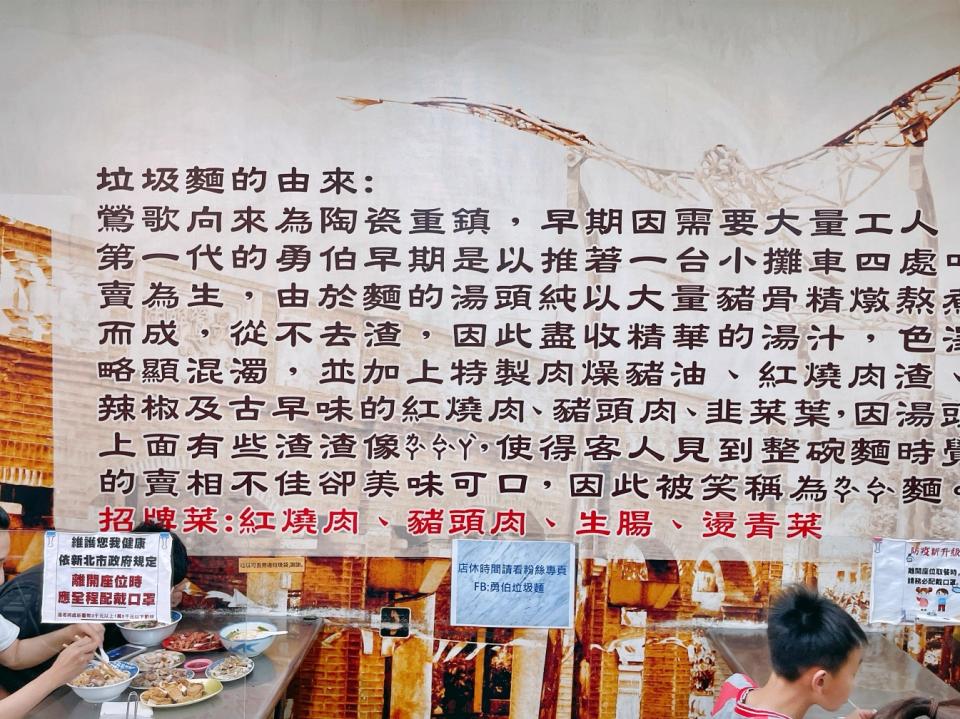 垃圾麵的由來:
鶯歌向來為陶瓷重鎮，早期因需要大量工人
第一代的勇伯早期是以推著一台小攤車四處
賣為生，由於麵的湯頭純以大量豬骨精燉熬煮
而成，從不去渣，因此盡收精華的湯汁，色澤
略顯混濁，並加上特製肉燥豬油、紅燒肉渣、
辣椒及古早味的紅燒肉、豬頭肉、韭菜葉，因湯頭
上面有些渣渣像ㄆㄣㄚˊ，使得客人見到整碗麵時覺
的賣相不佳卻美味可口，因此被笑稱為ㄆㄣ麵。
招牌菜:紅燒肉、豬頭肉、生腸、燙青菜
維護您我健康
依新北市政府規定
離開座位時
應全程配戴口罩
店休時間請看粉絲專頁
FB:勇伯垃圾麵
防疫新升級
離開座位取餐時
請務必配戴口罩